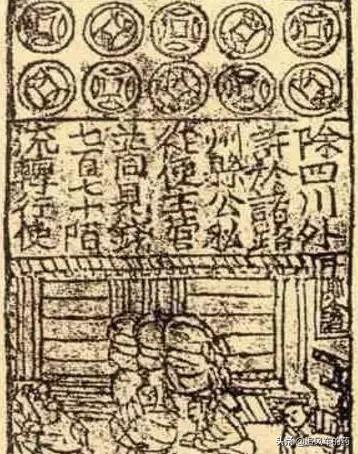 除四川外
許於諸路
州縣公私
從便主管
並同見錢
七百七十陌
流轉行使
头条